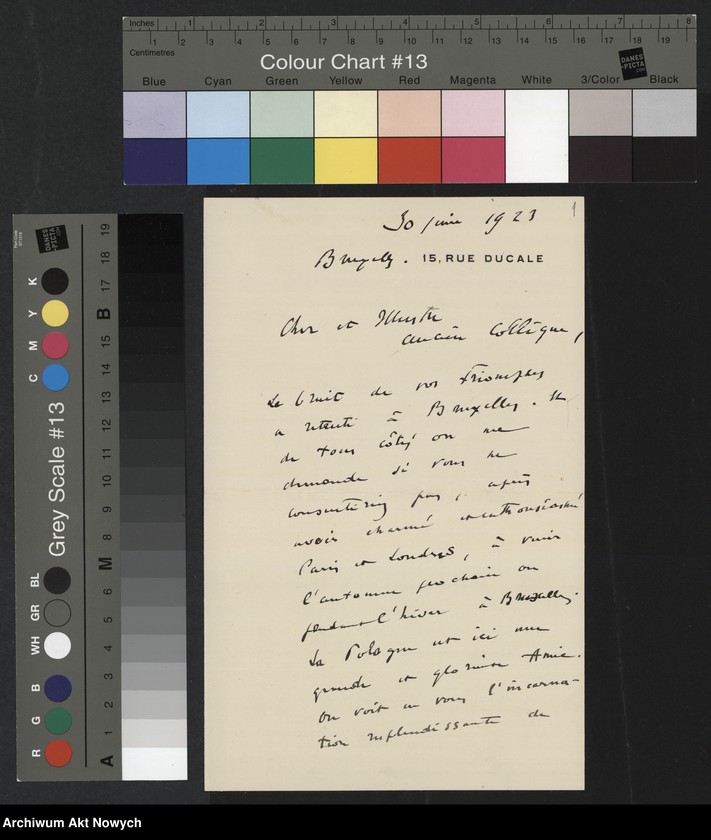 Inches 1 2 3 4 5 6 7 8
Centimetres 1 2 3 4 5 6 7 8 9 10 11 12 13 14 15 16 17 18 19
Colour Chart #13
DANES-PICTA.COM
Blue Cyan Green Yellow Red Magenta White 3/Color Black
30 juin 1923
1
Bruxelles. 15, RUE DUCALE
Cher et Illustre
ancien Collègue,
Le bruit de vos triomphes
a retenti à Bruxelles. Et
de tous côtés on me
demande si vous ne
consentiriez pas, après
avoir charmé et enthousiasmé
Paris et Londres, à venir
l'automne prochain ou
pendant l'hiver à Bruxelles.
La Pologne est ici une
grande et glorieuse Amie.
On voit en vous l'incarna-
tion resplendissante de
Grey Scale #13
DANES-PICTA.COM
K Y M C BL GR WH B G R
A 1 2 3 4 5 6 M 8 9 10 11 12 13 14 15 B 17 18 19
Archiwum Akt Nowych